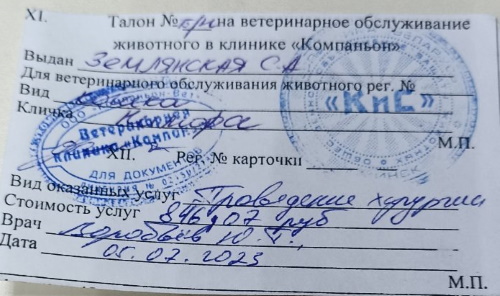 XI. Талон № на ветеринарное обслуживание
животного в клинике «Компаньон»
Выдан Землянская С.А
Для ветеринарного обслуживания животного рег. №
Вид собака
Кличка
М.П.
«КиС»
Ветеринарная
клиника «Компаньон»
ДЛЯ ДОКУМЕНТОВ
XII. Рег. № карточки
Вид оказанных услуг Проведение хирургии
Стоимость услуг руб
Врач Воробьёв Ю.
М.П.
Дата 05.07.2023